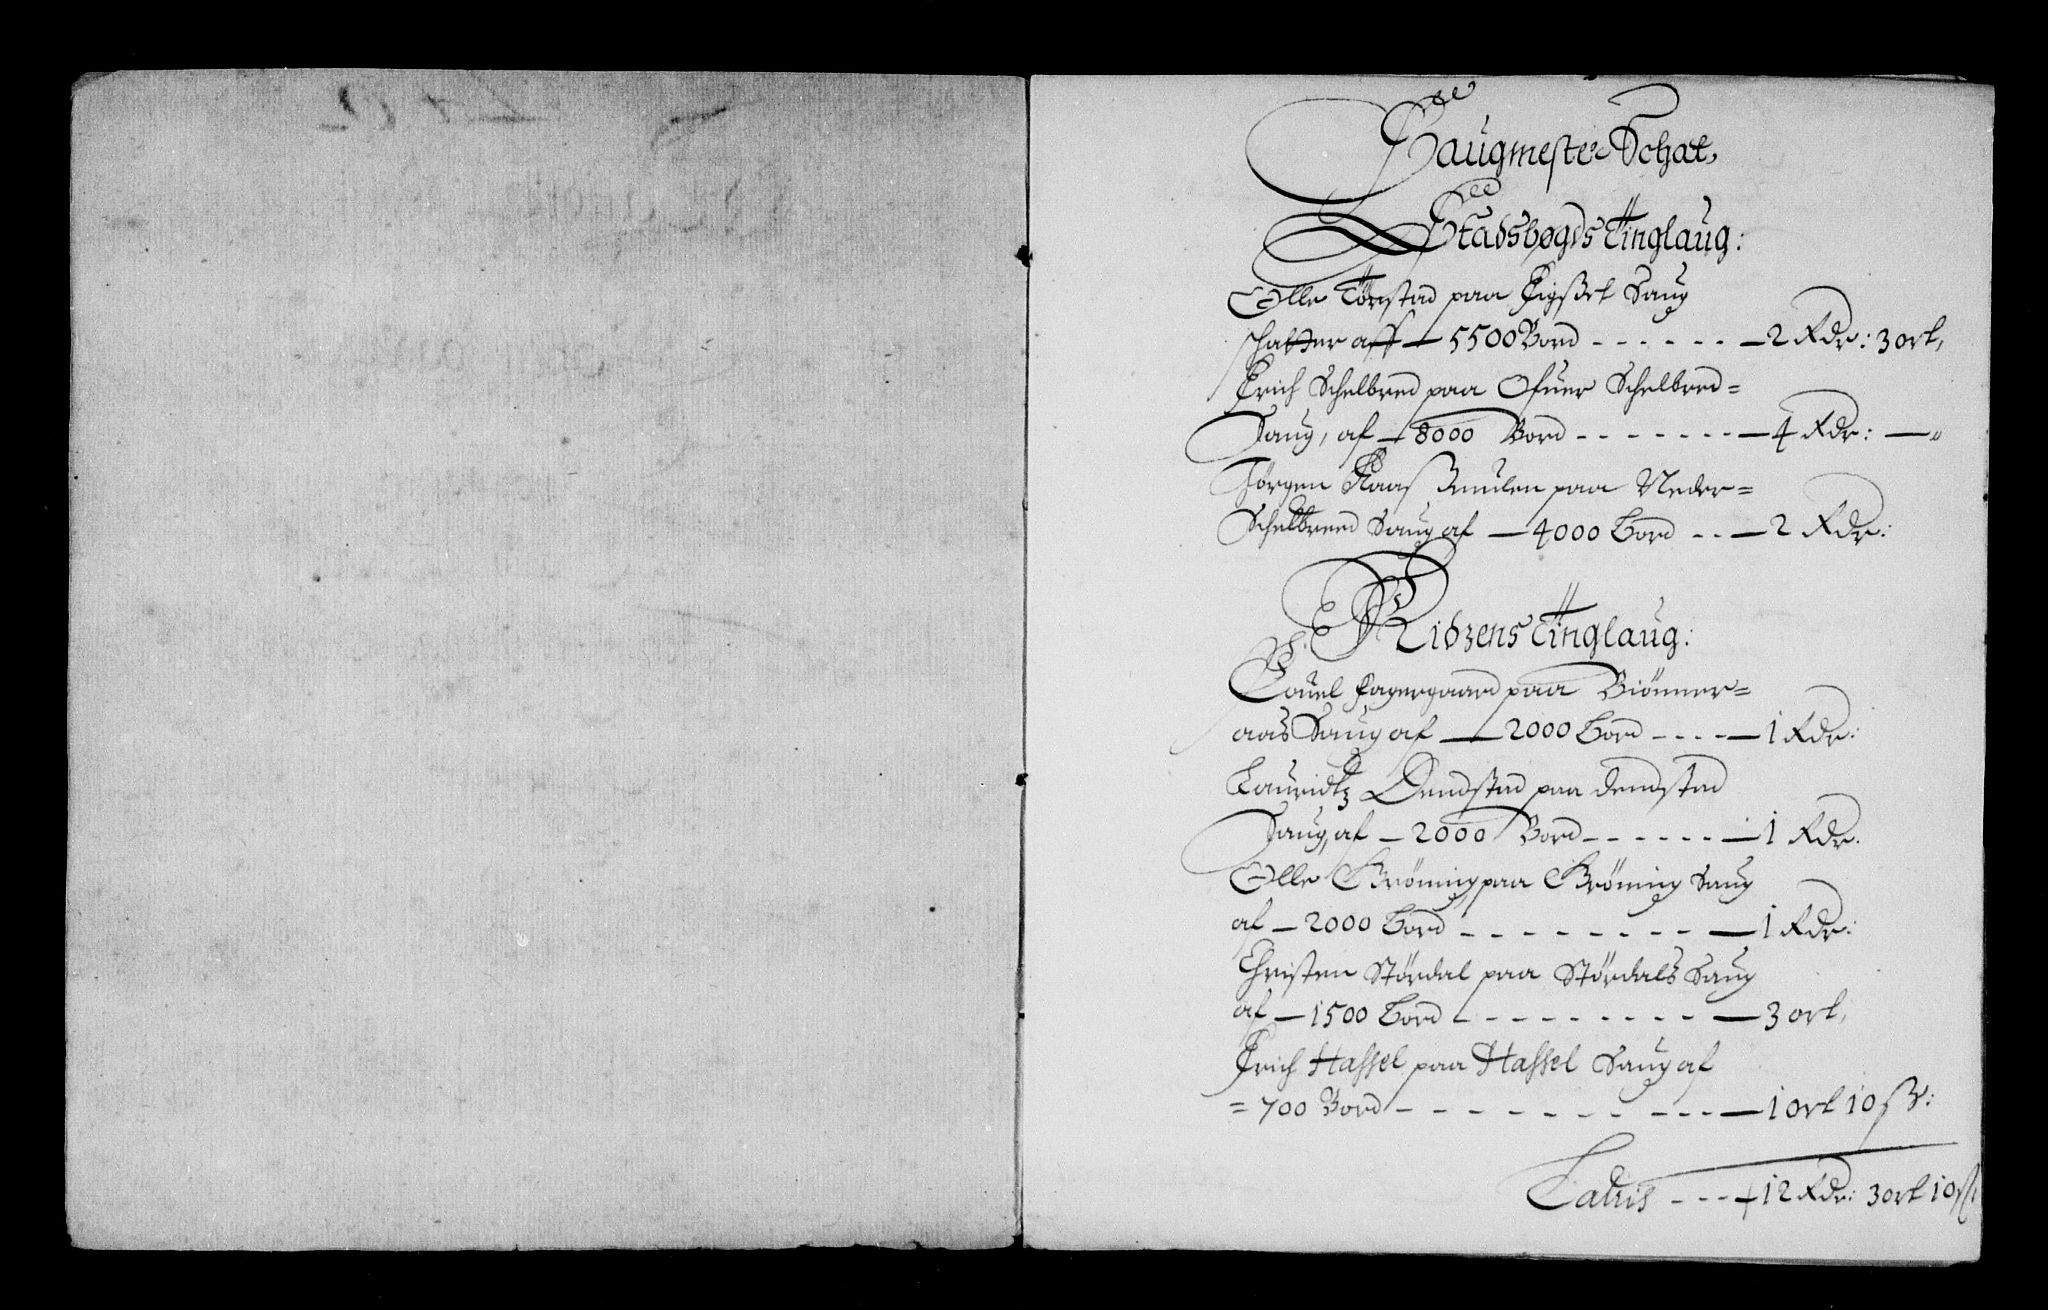 Saugmester Schat,
Stadsbøgds Tinglaug:
Olle Tørstad paa Saug
schatter aff — 5500 Bord - - - - - - — 2 Rdr: 3 ort,
Erich Schelbred paa Ofuer Schelbred=
Saug, af — 8000 Bord - - - - - - - — 4 Rdr: —
Jørgen paa Neder=
Schelbreed Saug af — 4000 Bord - - — 2 Rdr:
Ridzens Tinglaug:
Pouel Fagergaard paa Biönner=
aas Saug af — 2000 Bord - - - - — 1 Rdr:
Lauridtz Dendstad paa Dendstad
Saug, af — 2000 Bord - - - - - - — 1 Rdr.
Olle Grönning paa Grönning Saug
af — 2000 Bord - - - - - - - - — 1 Rdr:
Christen Stördal paa Stördals Saug
af — 1500 Bord - - - - - - - - — 3 ort,
Erich Hassel paa Hassel Saug af
= 700 Bord - - - - - - - - - - — 1 ort 10 ß:
Latus - - - 12 Rdr: 3 ort 10 ß